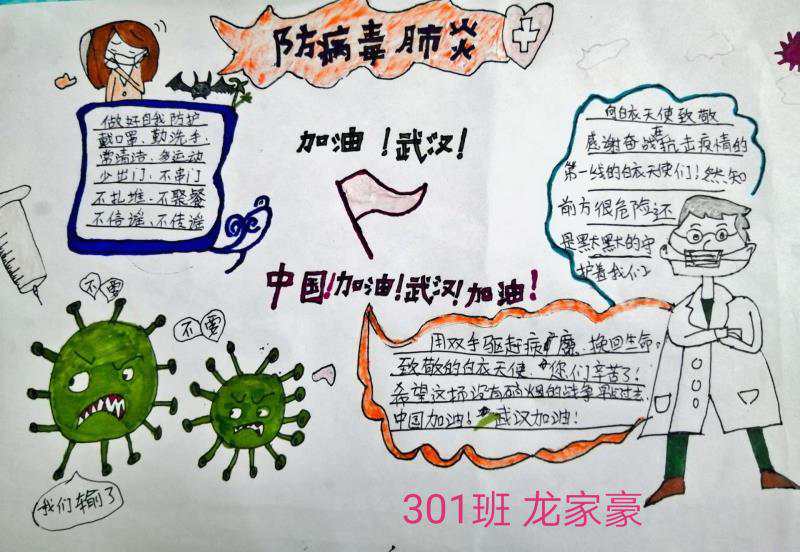 防病毒肺炎
做好自我防护
戴口罩、勤洗手
常清洁、多运动
少出门、不串门
不扎堆、不聚餐
不信谣、不传谣
加油！武汉！
向白衣天使致敬
感谢奋战在抗击疫情的
第一线的白衣天使们！然知
前方很危险还
是默默的守
护着我们
中国！加油！武汉！加油！
不要
不要
我们输了
用双手驱赶病魔、挽回生命。
致敬的白衣天使、“你们辛苦了！
希望这场没有硝烟的战争早过去
中国加油！武汉加油！
301班 龙家豪